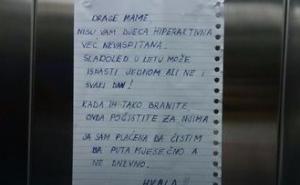 DRAGE MAME,
NISU VAM DJECA HIPERAKTIVNA
VEĆ NEVASPITANA.
SLADOLED U LJETU MOŽE
ISPASTI JEDNOM ALI NE I
SVAKI DAN!
KADA IH TAKO BRANITE
ONDA POČISTITE ZA NJIMA
JA SAM PLAĆENA DA ČISTIM
DVA PUTA MJESEČNO A
NE DNEVNO.
HVALA